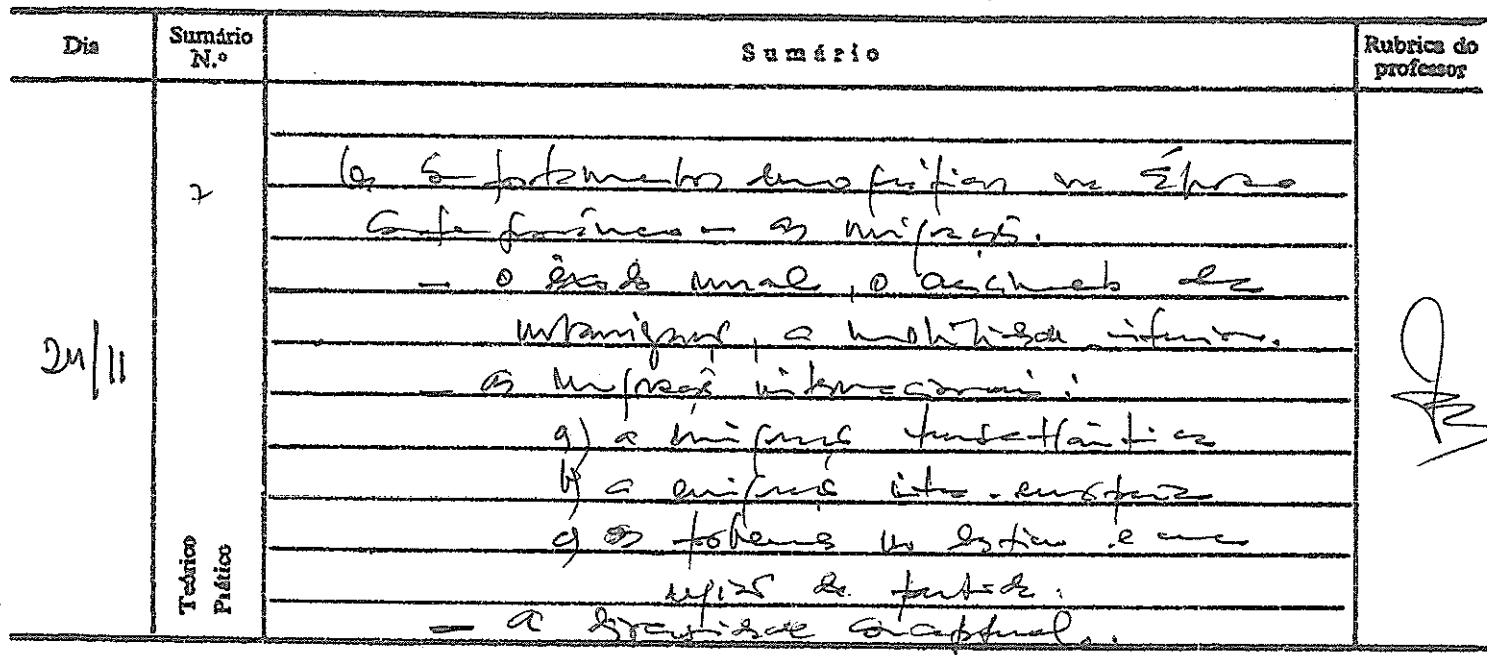 Dia
Sumário N.º
Sumário
Rubrica do professor
24/11
7
Teórico
Prático
Os comportamentos demográficos na Época
Contemporânea – as migrações.
– o êxodo rural, o da
urbanização, a mobilidade interior.
– as migrações internacionais:
a) a migração transatlântica
b) a emigração intra-europeia
c) os problemas no destino e nas
regiões de partida.
– a diversidade conceptual.